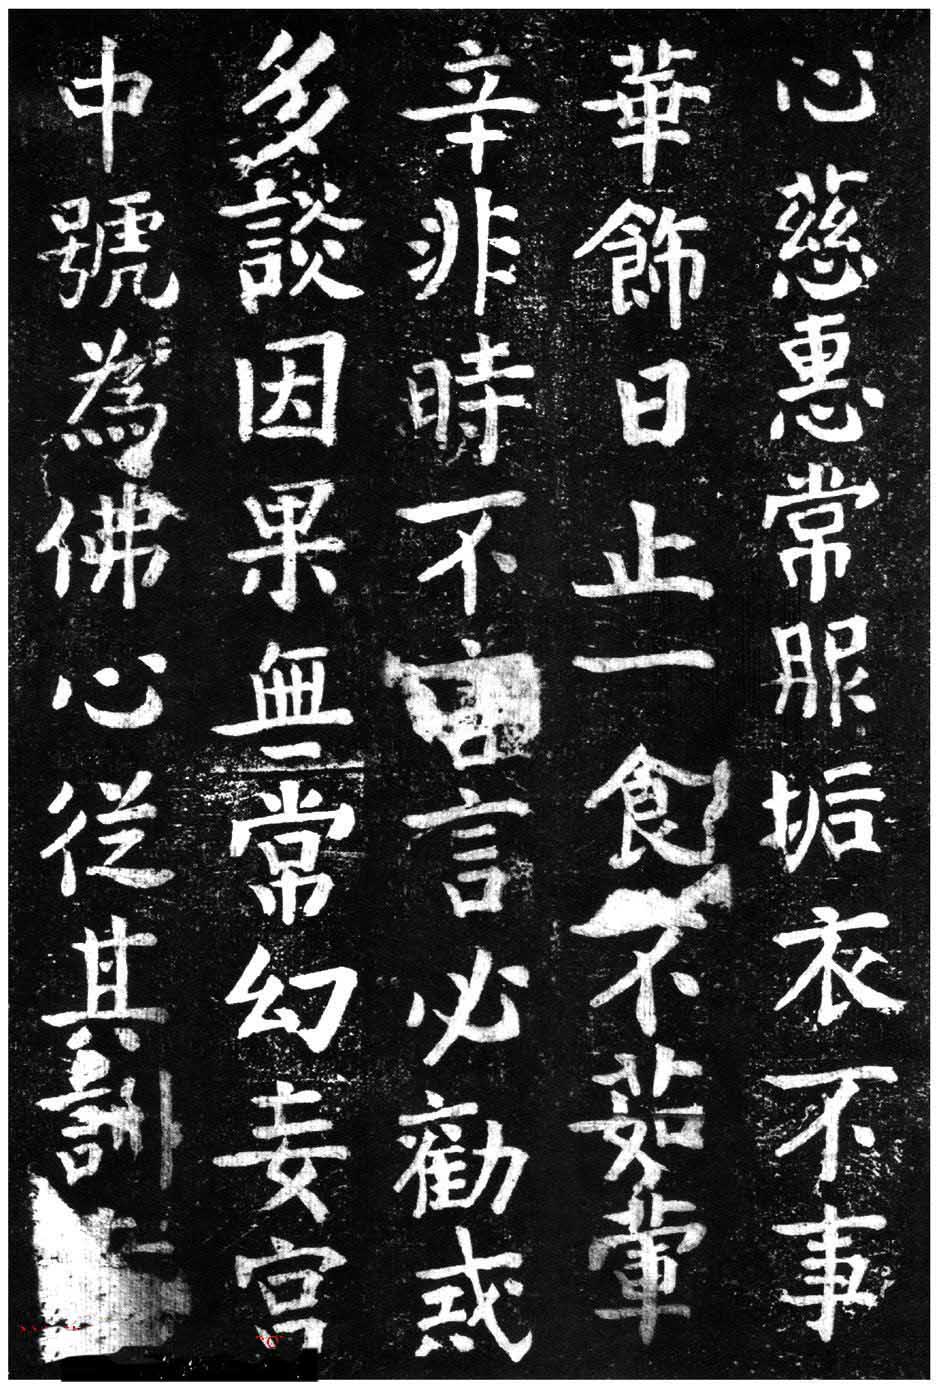 心慈惠常服垢衣不事
華飾日止一食不茹葷
辛非時不言言必勸惑
多談因果無常幻妄宮
中號為佛心從其訓